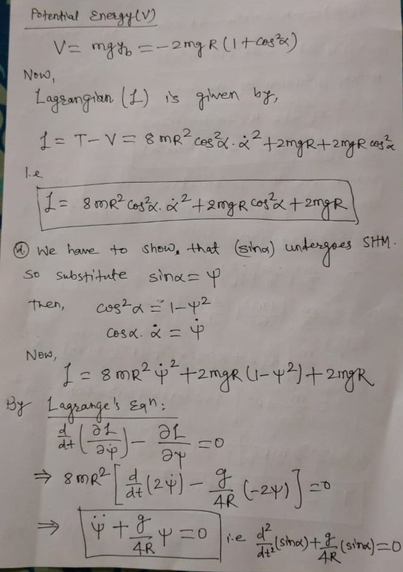 Potential Energy(V)
V = mgy_b = -2mgR(1+cos²α)
Now,
Lagrangian (L) is given by,
L = T-V = 8mR²cos²α.α̇² + 2mgR + 2mgR cos²α
I.e
L = 8mR²cos²α.α̇² + 2mgR cos²α + 2mgR
d) We have to show, that (sinα) undergoes SHM.
So substitute sinα = ψ
Then, cos²α = 1-ψ²
cosα.α̇ = ψ̇
Now,
L = 8mR²ψ̇² + 2mgR(1-ψ²) + 2mgR
By Lagrange's Eqⁿ:
d/dt(∂L/∂ψ̇) - ∂L/∂ψ = 0
⇒ 8mR²[d/dt(2ψ̇) - g/4R(-2ψ)] = 0
⇒ ψ̈ + g/4R ψ = 0 i.e d²/dt²(sinα) + g/4R(sinα) = 0